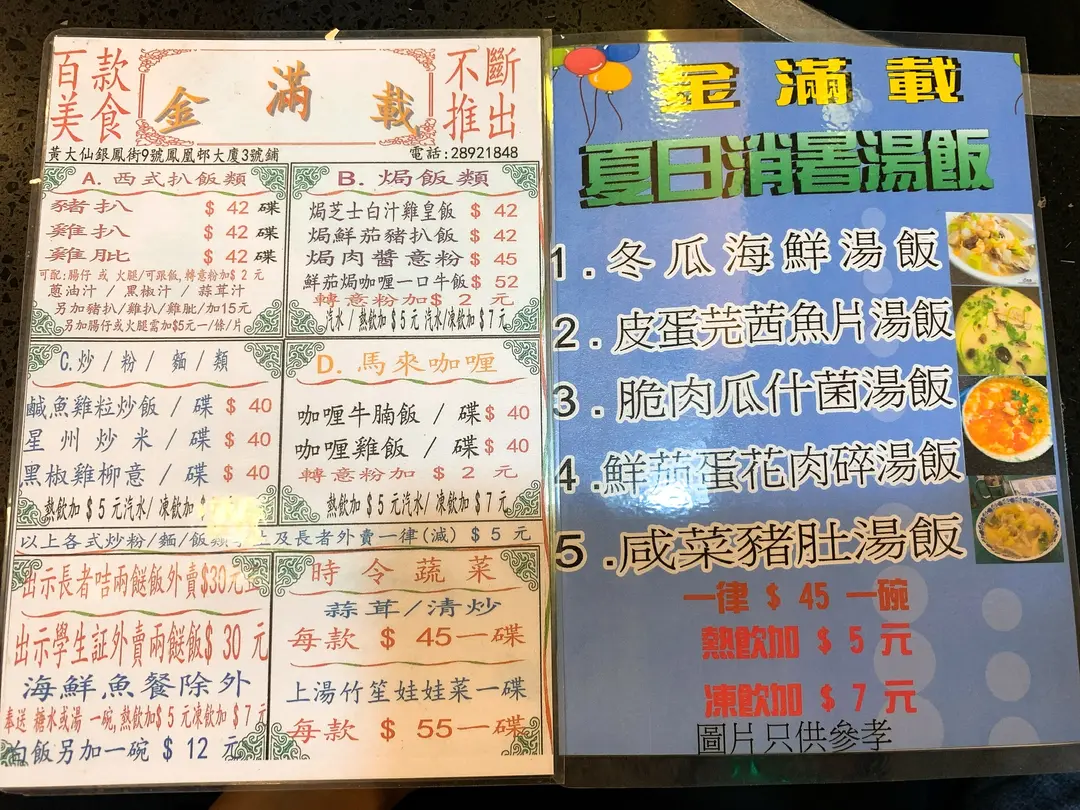 百款
美食
金滿載
不斷
推出
黃大仙銀鳳街9號鳳凰邨大廈3號鋪
電話:28921848
A. 西式扒飯類
豬扒 $ 42 碟
雞扒 $ 42 碟
雞髀 $ 42 碟
可配:腸仔 或 火腿/可跟飯,轉意粉加$ 2 元
蔥油汁 / 黑椒汁 / 蒜茸汁
另加豬扒/雞扒/雞髀/加15元
另加腸仔或火腿需加$5元一/條/片
B. 焗飯類
焗芝士白汁雞皇飯 $ 42
焗鮮茄豬扒飯 $ 42
焗肉醬意粉 $ 45
鮮茄焗咖喱一口牛飯 $ 52
轉意粉加 $ 2 元
汽水 / 熱飲加 $ 5 元 汽水/凍飲加 $ 7 元
C.炒/粉/麵/類
鹹魚雞粒炒飯 / 碟 $ 40
星州炒米 / 碟 $ 40
黑椒雞柳意 / 碟 $ 40
熱飲加 $ 5 元汽水/ 凍飲加 $
D. 馬來咖喱
咖喱牛腩飯 / 碟 $ 40
咖喱雞飯 / 碟 $ 40
轉意粉加 $ 2 元
熱飲加 $ 5 元汽水/ 凍飲加 $ 7 元
以上各式炒粉/麵/飯類 上及長者外賣一律(減) $ 5 元
出示長者咭兩餸飯外賣$30元
出示學生証外賣兩餸飯$ 30 元
海鮮魚餐除外
奉送 糖水或湯 一碗,熱飲加$ 5 元凍飲加 $ 7 元
白飯另加一碗 $ 12 元
時令蔬菜
蒜茸/清炒
每款 $ 45一碟
上湯竹笙娃娃菜一碟
每款 $ 55一碟
金滿載
夏日消暑湯飯
1.冬瓜海鮮湯飯
2.皮蛋芫茜魚片湯飯
3.脆肉瓜什菌湯飯
4.鮮茄蛋花肉碎湯飯
5.咸菜豬肚湯飯
一律 $ 45 一碗
熱飲加 $ 5 元
凍飲加 $ 7 元
圖片只供參孝